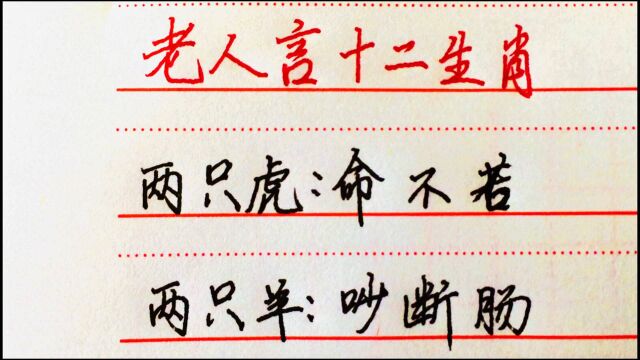 老人言十二生肖
两只虎:命不若
两只羊:吵断肠